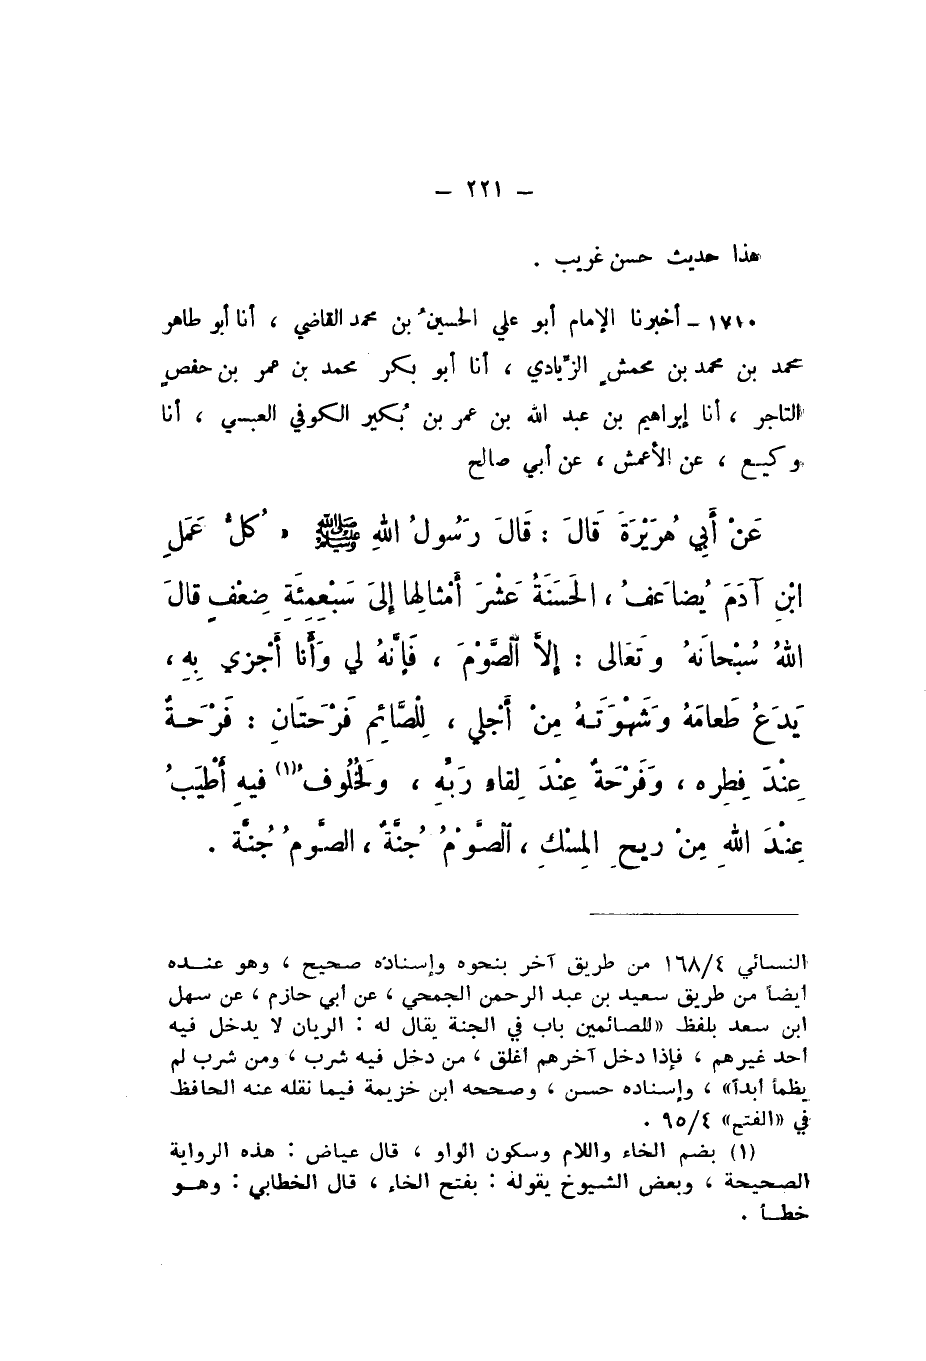 – ٢٢١ –
هذا حديث حسن غريب .
١٧١٠ – أخبرنا الإمام أبو علي الحسينُ بن محمد القاضي ، أنا أبو طاهر
محمد بن محمد بن محمشٍ الزِّيادي ، أنا أبو بكر محمد بن عمر بن حفصٍ
التاجر ، أنا إبراهيم بن عبد الله بن عمر بن بُكير الكوفي العبسي ، أنا
وكيع ، عن الأعمش ، عن أبي صالح
عَنْ أَبِي هُرَيْرَةَ قَالَ : قَالَ رَسُولُ اللهِ ﷺ « كُلُّ عَمَلِ
ابْنِ آدَمَ يُضاعَفُ ، الحَسَنَةُ عَشْرَ أَمْثالِها إِلىَ سَبْعِمِئَةِ ضِعْفٍ قالَ
اللهُ سُبْحانَهُ وَتَعَالى : إِلاَّ الصَّوْمَ ، فَإِنَّهُ لي وَأَنا أَجْزي بِهِ ،
يَدَعُ طَعامَهُ وَشَهْوَتَهُ مِنْ أَجْلي ، لِلْصَّائِمِ فَرْحَتَانِ : فَرْحَةٌ
عِنْدَ فِطرِه ، وَفَرْحَةٌ عِنْدَ لِقاءِ رَبِّه ، وَلَخُلُوفُ (١) فيهِ أَطْيَبُ
عِنْدَ اللهِ مِنْ ريحِ المِسْكِ ، الصَّوْمُ جُنَّةٌ ، الصَّومُ جُنَّة .
النسائي ١٦٨/٤ من طريق آخر بنحوه وإسناده صحيح ، وهو عنده
أيضاً من طريق سعيد بن عبد الرحمن الجمحي ، عن أبي حازم ، عن سهل
ابن سعد بلفظ «للصائمين باب في الجنة يقال له : الريان لا يدخل فيه
أحد غيرهم ، فإذا دخل آخرهم أغلق ، من دخل فيه شرب ، ومن شرب لم
يظمأ أبداً» ، وإسناده حسن ، وصححه ابن خزيمة فيما نقله عنه الحافظ
في «الفتح» ٩٥/٤ .
(١) بضم الخاء واللام وسكون الواو ، قال عياض : هذه الرواية
الصحيحة ، وبعض الشيوخ يقوله : بفتح الخاء ، قال الخطابي : وهو
خطأ .